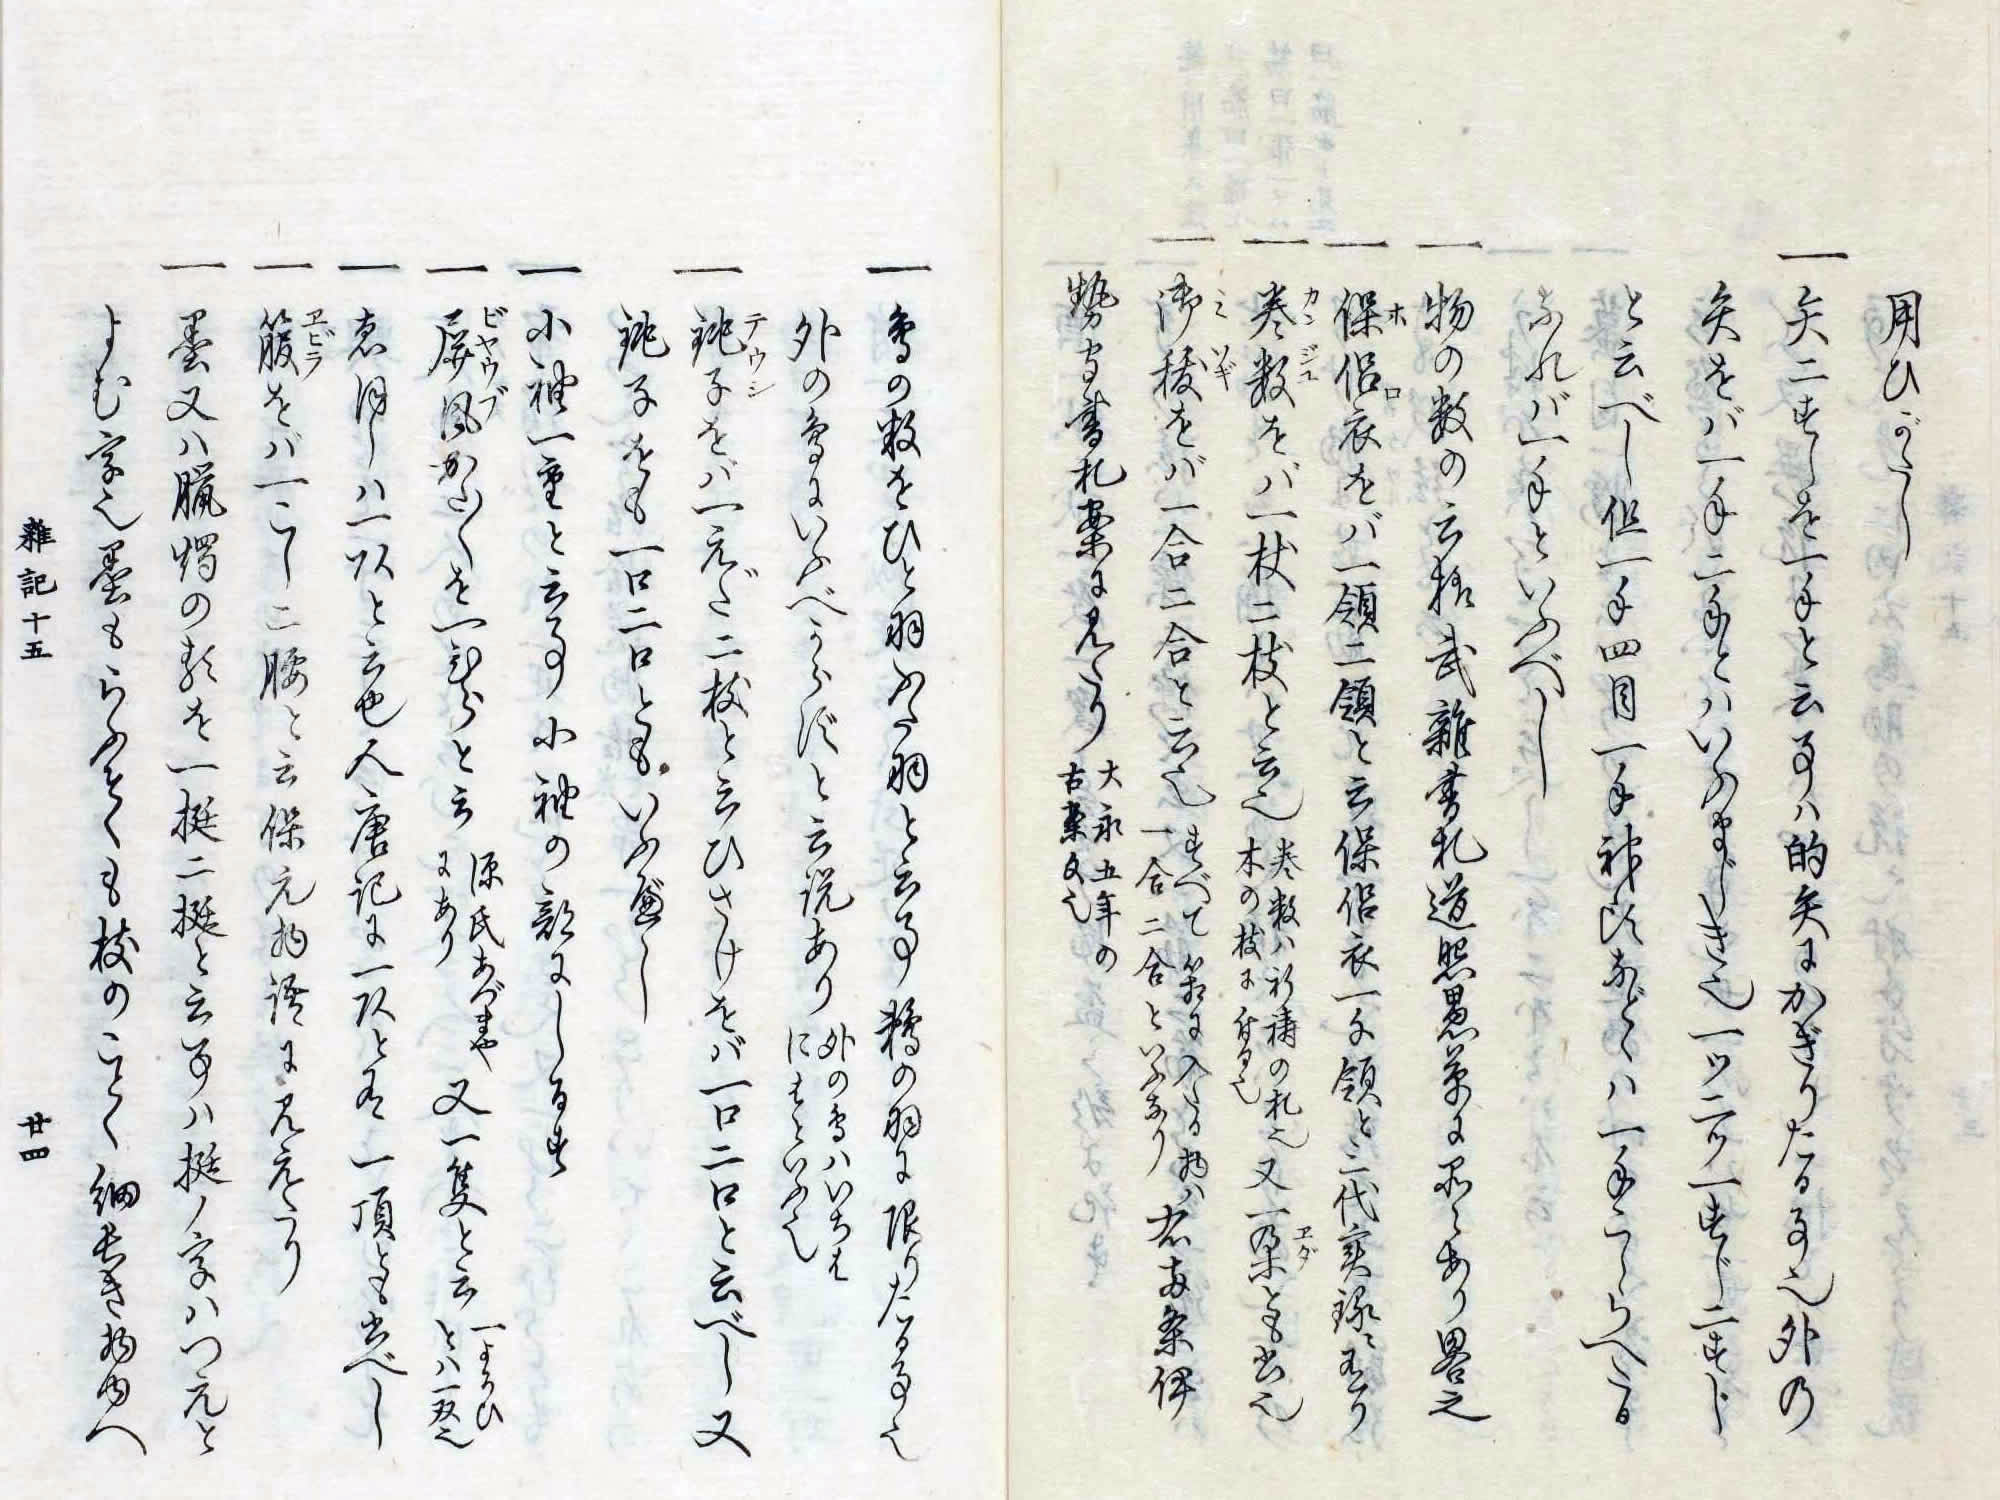 用ひがたし
一 矢二すじを一手と云事ハ的矢にかぎりたる事也外の
矢をバ一手二手とハいふまじき也一ツ二ツ一すじ二すじ
と云べし但一手四目一手神頭などハ一手こしらへたる
なれバ一手といふべし
一 物の数の云様武雑書札道照愚草に不々あり畧之
一 保侶衣をバ一領二領と云保侶衣一千領と三代実録ニ有り
ホロ
一 巻数をバ一枝二枝と云也 巻数ハ祈祷の札也木の枝に付る也 又一朶とも出也
カンジユ
エダ
一 御秡をバ一合二合と云也 すべて箱に入たる物ハ一合二合といふなり 右両条伊
ミソギ
勢守書札案に見たり 大永五年の古案文也
一 鳥の数をひと羽ふた羽と云事鷹の羽に限りたる事也
外の鳥にいふべからずと云説あり 外の鳥ハいちはにはといふ也
一 銚子をバ一えだ二枝と云ひさげをバ一口二口と云べし又
テウシ
銚子をも一口二口ともいふ歟
一 小袖一重と云事小袖の部にしるす
一 屏風かたしを一ひらと云 源氏あづまやにあり 又一隻と云 一よろひとハ一双也
ビヤウブ
一 恵胡しハ一以と云也人唐記に一以と有一頂とも出べし
一 箙をバ一こし二腰と云保元物語に見えたり
ヱビラ
一 墨又ハ臘燭の類を一挺二挺と云事ハ挺ノ字ハつえと
よむ字也墨もらふそくも枝のごとく細長き物ゆへ
雑記十五
廿四